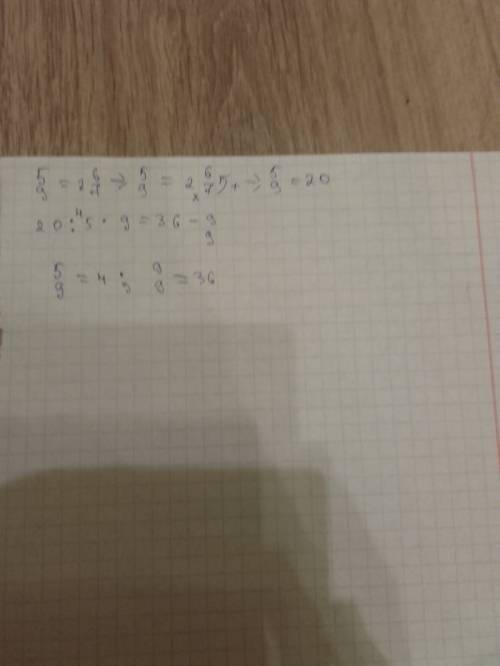 5/9 = 2 6/7 → 5/9 = 2 × 6/7 5, + → 5/9 = 20
20 : 4 5 · 9 = 36 - 9/9
5/9 = 4 ; 9/9 = 36